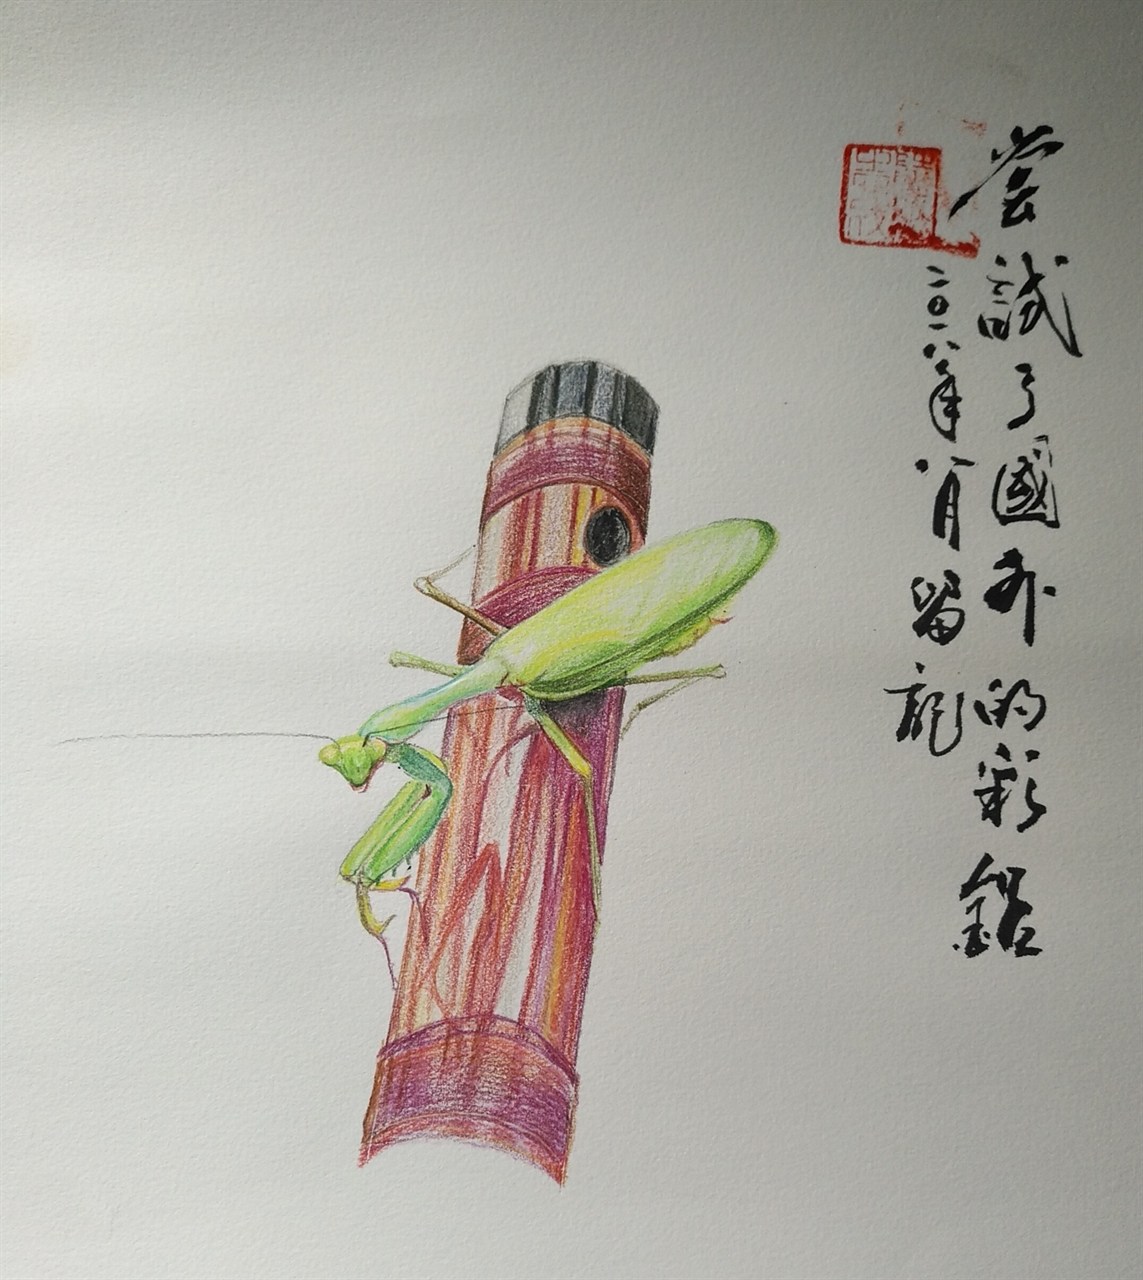 尝試了國外的彩鉛
二〇一八年八月留龍